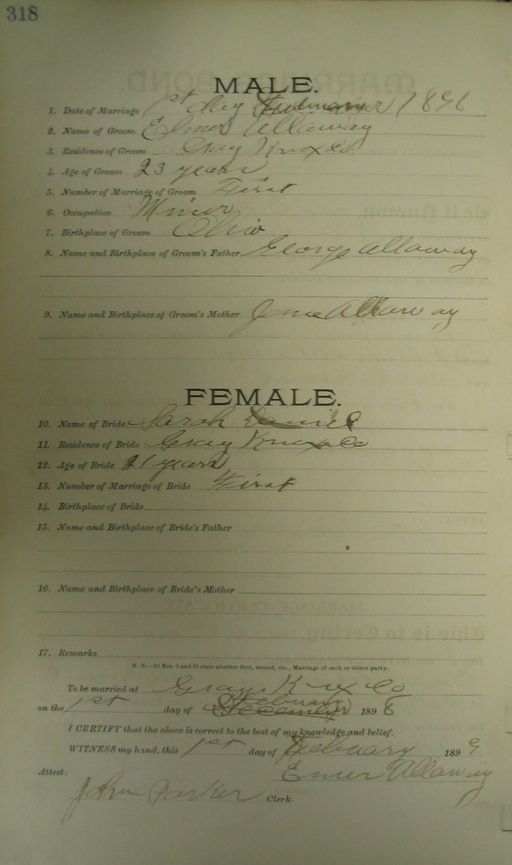 318
MALE.
1. Date of Marriage 1st day
2. Name of Groom Elmer Allaway
3. Residence of Groom Gray Knox Co
4. Age of Groom 23 years
5. Number of Marriage of Groom First
6. Occupation Miner
7. Birthplace of Groom Ohio
8. Name and Birthplace of Groom's Father George Allaway
9. Name and Birthplace of Groom's Mother Jane Allaway
FEMALE.
10. Name of Bride Sarah Daniel
11. Residence of Bride Gray Knox Co
12. Age of Bride 21 years
13. Number of Marriage of Bride First
14. Birthplace of Bride
15. Name and Birthplace of Bride's Father
16. Name and Birthplace of Bride's Mother
17. Remarks
N. B.—At Nos. 5 and 13 state whether first, second, etc., Marriage of each or either party.
To be married at Gray Knox Co
on the 1st day of February 1898
I CERTIFY that the above is correct to the best of my knowledge and belief.
WITNESS my hand, this 1st day of Febuary 1899
Emer Allaway
Attest:
John Parker Clerk